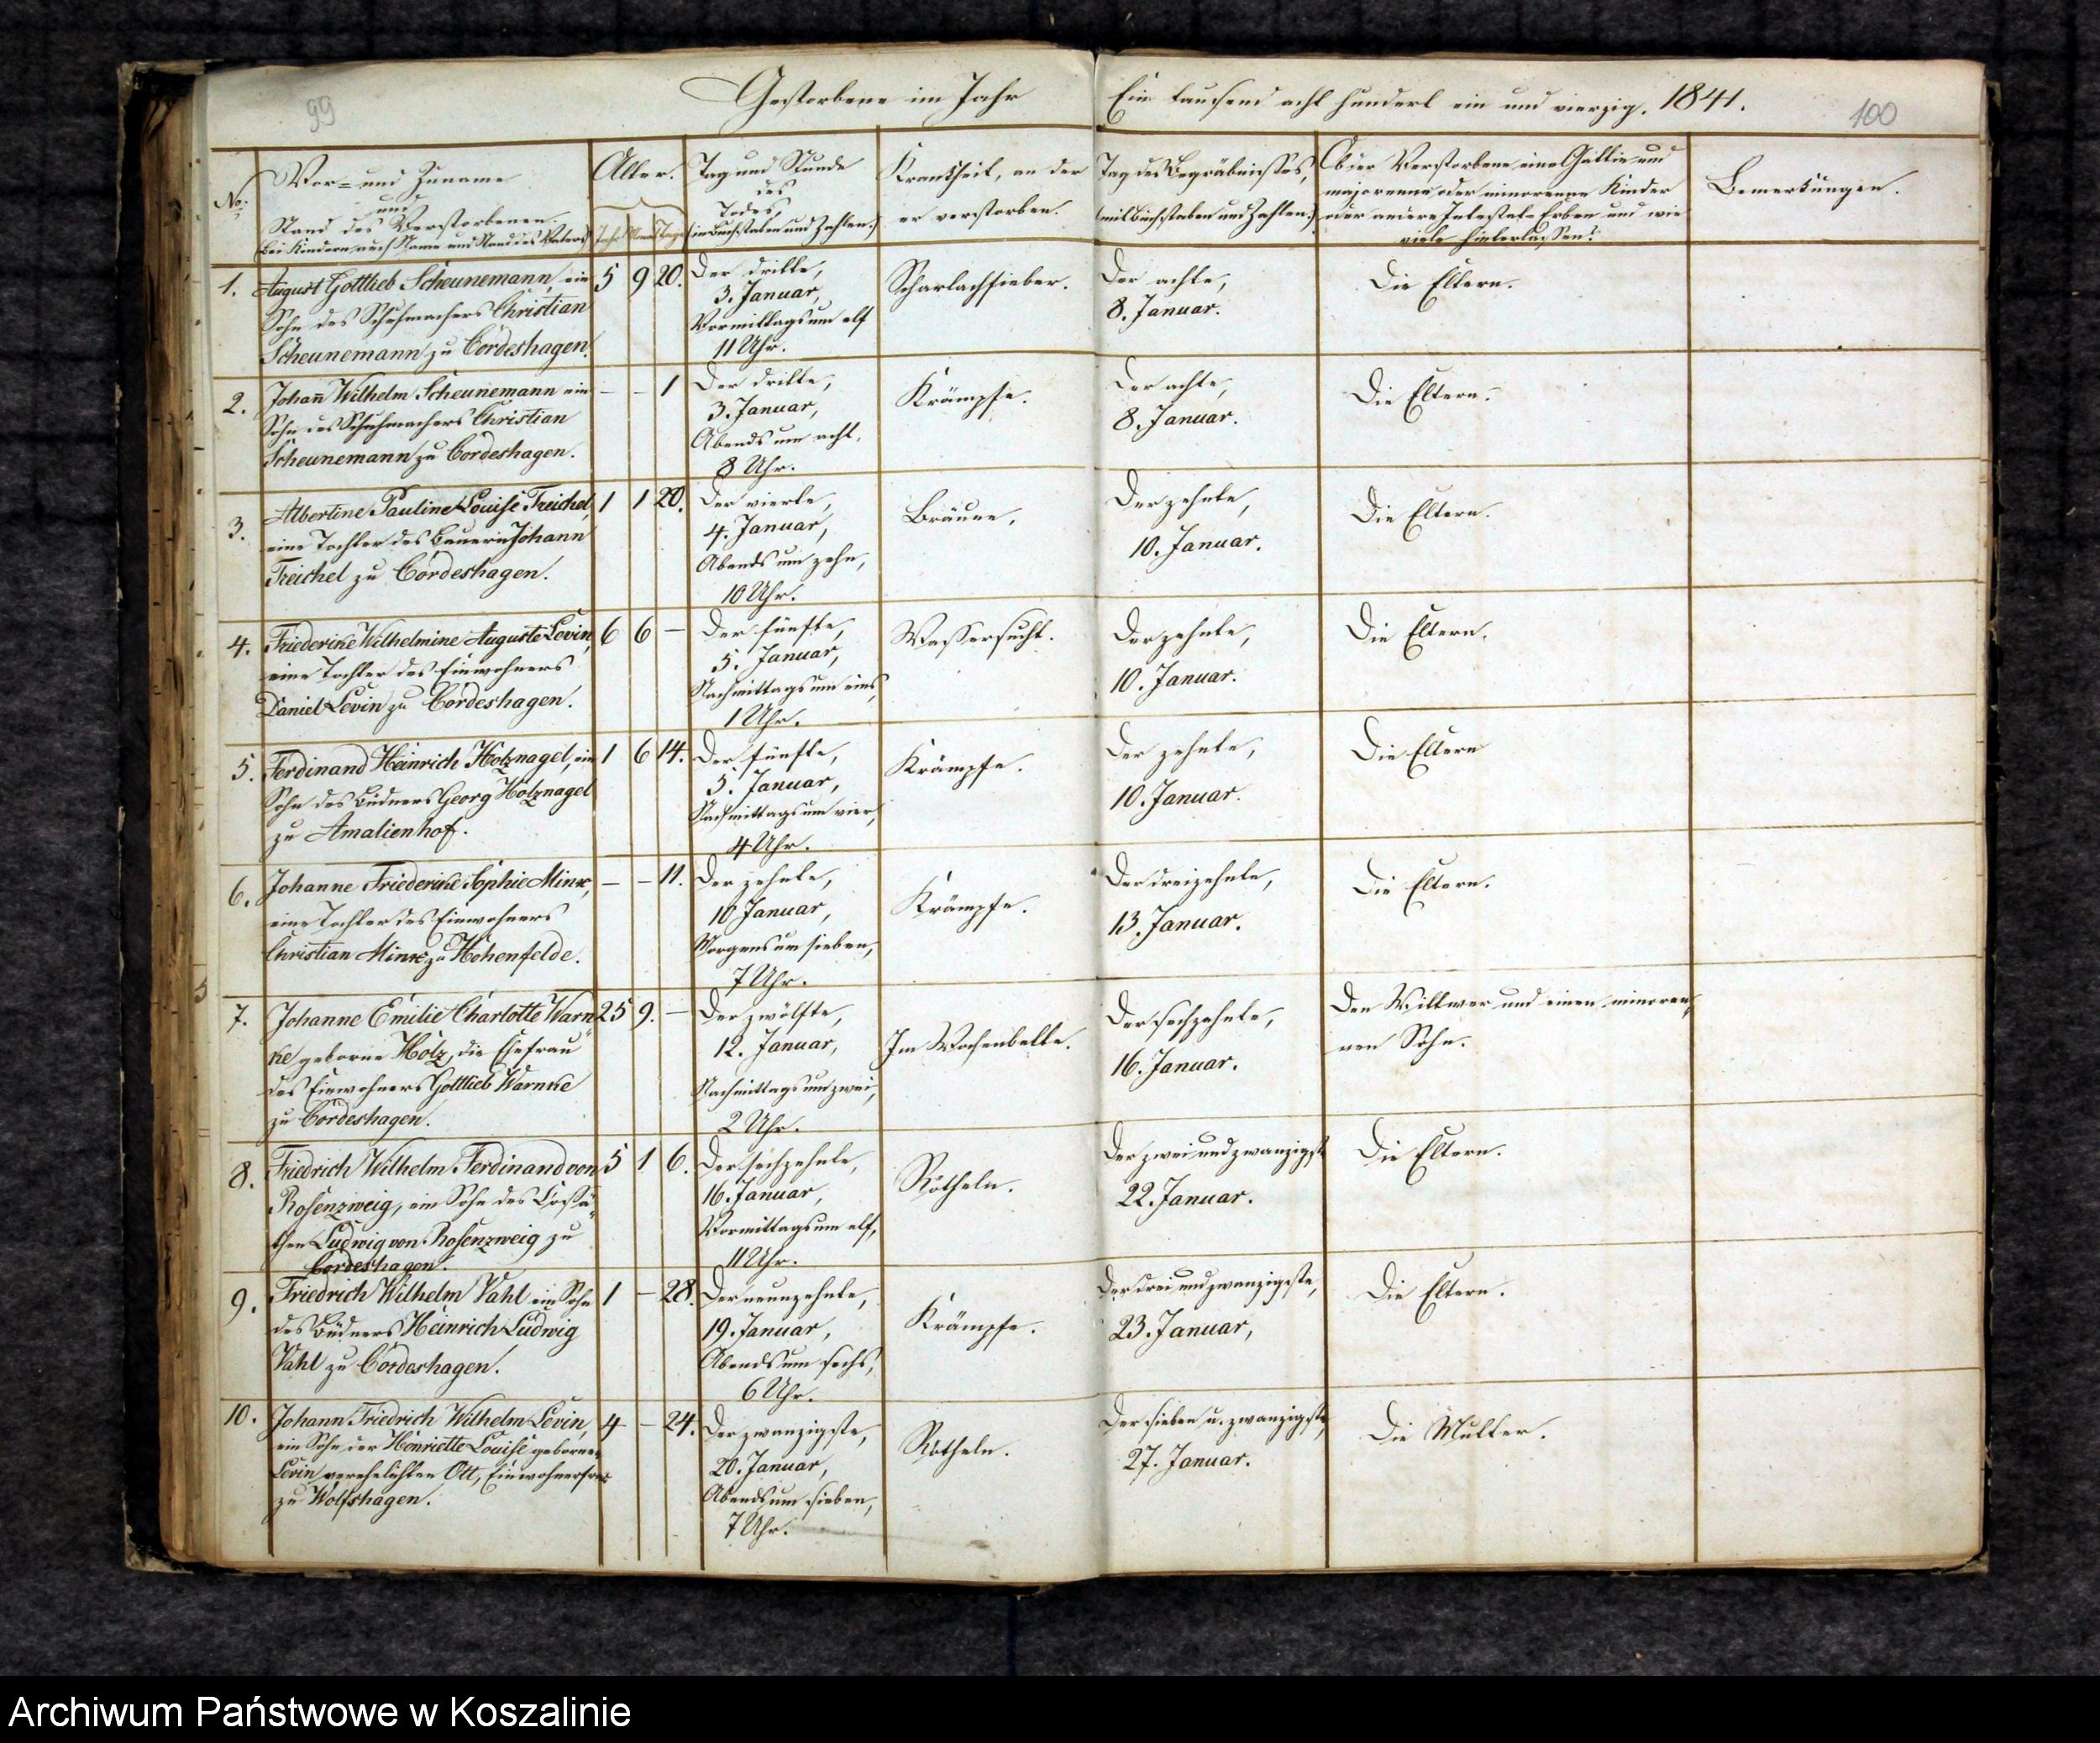 99
Gestorbene im Jahr
Ein tausend acht hundert ein und vierzig. 1841.
100
No.
Vor- und Zuname
und
Stand des Verstorbenen.
Bei Kindern auch Name und Stand des Vaters
Alter.
Jahr Mon Tage
Tag und Stunde
des
Todes
(in Buchstaben und Zahlen.)
Krankheit, an der
er verstorben.
Tag des Begräbnisses,
(mit Buchstaben und Zahlen.)
Ob der Verstorbene eine Gattin und
majorenne oder minorenne Kinder
oder andere Intestat-Erben und wie
viele hinterlassen?
Bemerkungen.
1.
August Gottlieb Scheunemann, ein
Sohn des Schuhmachers Christian
Scheunemann zu Cordeshagen.
5 9 20.
Der dritte,
3. Januar,
Vormittags um elf
11 Uhr.
Scharlachfieber.
Der achte,
8. Januar.
Die Eltern.
2.
Johañ Wilhelm Scheunemann ein
Sohn des Schuhmachers Christian
Scheunemann zu Cordeshagen.
– – 1
Der dritte,
3. Januar,
Abends um acht,
8 Uhr.
Krämpfe.
Der achte,
8. Januar.
Die Eltern.
3.
Albertine Pauline Louise Treichel,
eine Tochter des Bauern Johann
Treichel zu Cordeshagen.
1 1 20.
Der vierte,
4. Januar,
Abends um zehn,
10 Uhr.
Bräune.
Der zehnte,
10. Januar.
Die Eltern.
4.
Friederike Wilhelmine Auguste Levin,
eine Tochter des Einwohners
Daniel Levin zu Cordeshagen.
6 6 –
Der fünfte,
5. Januar,
Nachmittags um eins,
1 Uhr.
Wassersucht.
Der zehnte,
10. Januar.
Die Eltern.
5.
Ferdinand Heinrich Holznagel, ein
Sohn des Büdners Georg Holznagel
zu Amalienhof.
1 6 14.
Der fünfte,
5. Januar,
Nachmittags um vier,
4 Uhr.
Krämpfe.
Der zehnte,
10. Januar.
Die Eltern
6.
Johanne Friederike Sophie Mink,
eine Tochter des Einwohners
Christian Mink zu Hohenfelde.
– – 11.
Der zehnte,
10 Januar,
Morgens um sieben,
7 Uhr.
Krämpfe.
Der dreizehnte,
13. Januar.
Die Eltern.
7.
Johanne Emilie Charlotte Warn
ke, geborne Holz, die Ehefrau
des Einwohners Gottlieb Warnke
zu Cordeshagen.
25 9. –
Der zwölfte,
12. Januar,
Nachmittags um zwei,
2 Uhr.
Im Wochenbette.
Der sechzehnte,
16. Januar.
Den Wittwer und einen minoren
nen Sohn.
8.
Friedrich Wilhelm Ferdinand von
Rosenzweig, ein Sohn des Cossä-
then Ludwig von Rosenzweig zu
Cordeshagen.
5 1 6.
Der sechzehnte,
16. Januar,
Vormittags um elf,
11 Uhr.
Rötheln.
Der zwei und zwanzigste
22. Januar.
Die Eltern.
9.
Friedrich Wilhelm Vahl ein Sohn
des Büdners Heinrich Ludwig
Vahl zu Cordeshagen.
1 – 28.
Der neunzehnte,
19. Januar,
Abends um sechs,
6 Uhr.
Krämpfe.
Der drei und zwanzigste,
23. Januar,
Die Eltern.
10.
Johann Friedrich Wilhelm Levin,
ein Sohn der Henriette Louise gebornen
Levin verehelichten Ott, Einwohnerfrau
zu Wolfshagen.
4 – 24.
Der zwanzigste,
20. Januar,
Abends um sieben,
7 Uhr.
Rötheln.
Der sieben u. zwanzigste,
27. Januar.
Die Mutter.
Archiwum Państwowe w Koszalinie